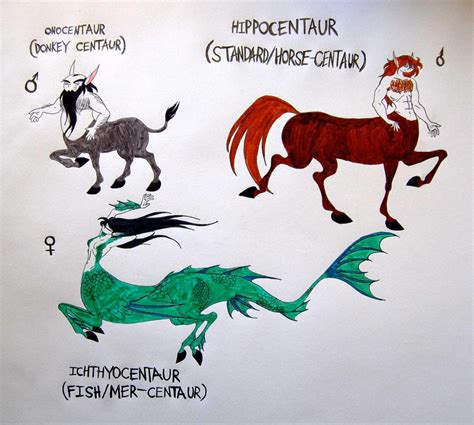 ONOCENTAUR
(DONKEY CENTAUR)
HIPPOCENTAUR
(STANDARD/HORSE-CENTAUR)
♂
♂
♀
ICHTHYOCENTAUR
(FISH/MER-CENTAUR)